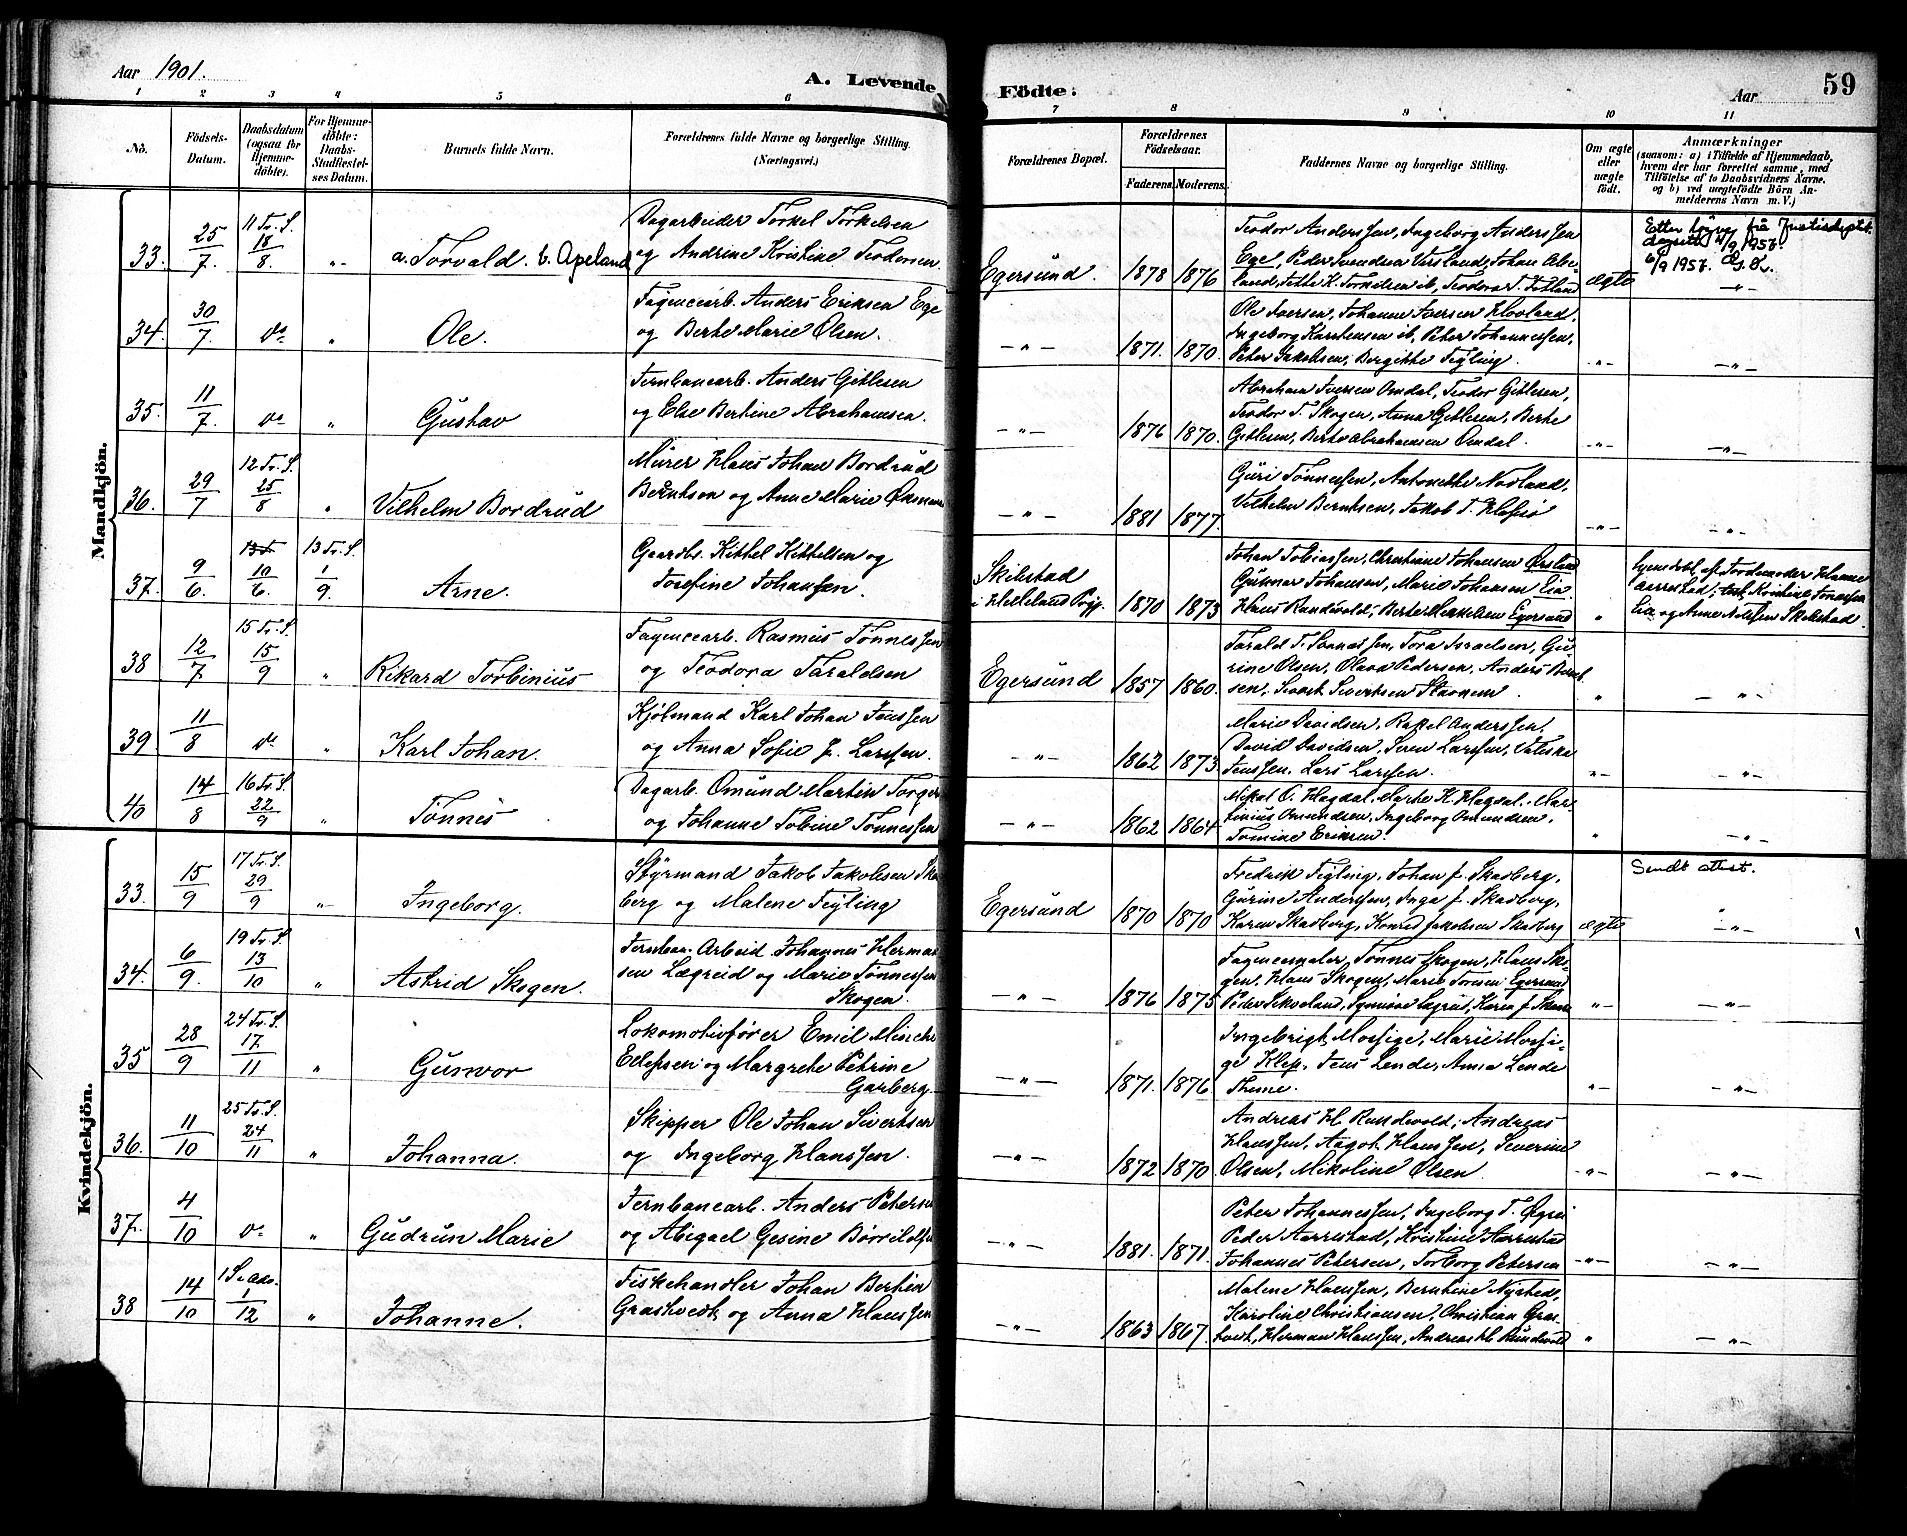 Aar 1901.
A. Levende Födte.
Aar
59
1 2 3 4 5 6 7 8 9 10 11
No.
Födsels-Datum.
Daabsdatum (ogsaa for Hjemmedöbte).
For Hjemmedöbte: Daabs-Stadfæstelses Datum.
Barnets fulde Navn.
Forældrenes fulde Navne og borgerlige Stilling. (Næringsvei.)
Forældrenes Bopæl.
Forældrenes Födselsaar.
Faderens. Moderens.
Faddernes Navne og borgerlige Stilling.
Om ægte eller uægte födt.
Anmærkninger
(saasom: a) i Tilfælde af Hjemmedaab,
hvem der har forrettet samme, med
Tilföielse af to Daabsvidners Navne.
og b) ved uægtefödte Börn An-
melderens Navn m. V.)
Mandkjön.
33. 25/7. 11 Tr. S. 18/8. -"- a. Torvald. b. Apeland
Dagarbeider Torkel Torkelsen
og Andrine Kristine Teodorsen.
Egersund. 1878 1876
Teodor Anderssen, Ingeborg Anderssen
Ege, Peder Svendsen Versland, Johan Ape-
land, Jette K. Torkelsen ib, Teodora T. Jetland
ægte
Etter løyve frå Justisdeptet.
dagsett 4/9 1957.
6/9 1957.
-"-
34. 30/7. do " Ole.
Fayencearb. Anders Eriksen Ege
og Berte Marie Olsen.
-"- 1871. 1870.
Ole Iversen, Johanne Iversen Hovland,
Ingeborg Karstensen ib, Peter Johannessen,
Peter Jakobsen, Bergitte Feyling.
-"- -"-
35. 11/7. do " Gustav
Jernbanearb. Anders Gitlesen
og Else Bertine Abrahamsen.
-"- 1876 1870.
Abraham Iversen Omdal, Teodor Gitlesen,
Teodor T. Skogen, Anna Gitlesen, Berte
Gitlesen, Berte Abrahamsen Omdal.
-"- -"-
36. 29/7 12 Tr. S. 25/8 " Vilhelm Bordrud
Murer Hans Johan Bordrud
Berntsen og Anne Marie
-"- 1881 1877.
Guri Tønnessen, Antonette Norland,
Vilhelm Berntsen, Jakob T.
-"- -"-
37. 9/6. 10/6. 13 Tr. S. 1/9. Arne.
Gaardbr. Kittel Kittelsen og
Josefine Johansen.
Skilstad
i Helleland Prgj. 1870 1873
Johan Tobiassen, Christiane Johansen Ørsland
Gunnar Johansen, Marie Johansen Eia
Hans Rundvold, Berte Mikkelsen Egersund
"
hjemdøbt af Jordmoder Hanne
Aarrestad; test. Kristine Jonassen
Eia og Arne Nilssen Skilstad
38 12/7 15 Tr. S. 15/9 " Rikard Torbinius
Fayencearb. Rasmus Tønnessen
og Teodora Taraldsen
Egersund 1857 1860.
Tarald T. Tønnessen, Tora Israelsen, Gu-
rine Olsen, Olava Pedersen, Anders Bernt-
sen, Sivert Sivertsen
" -"-
39. 11/8 do " Karl Johan.
Kjøbmand Karl Johan Jenssen
og Anna Sofie J. Larssen.
-"- 1862 1873
Marie Davidsen, Rakel Anderssen,
David Davidsen, Seren Larssen, Valeska
Jenssen, Lars Larssen.
-"- -"-
40 14/8 16 Tr. S. 22/9 " Tønnes
Dagarb. Omund Martin Torger
og Johanne Tobine Tønnessen
-"- 1862 1864
Mikal O. Hagdal, Marte K. Hagdal, Mar-
tinius Omundsen, Ingeborg Omundsen,
Tomine Eriksen.
" -"-
Kvindekjön.
33. 15/9 17 Tr. S. 29/9 -"- Ingeborg.
Styrmand Jakob Jakobsen Ska-
berg og Malene Feyling
Egersund 1870 1870
Fredrik Feyling, Johan J. Skadberg,
Gurine Anderssen, Inga J. Skadberg,
Karen Skadberg, Konrad Jakobsen Skadberg
ægte
Sendt attest.
" -"-
34. 6/9. 19 Tr. S. 13/10 " Astrid Skogen.
Jernban. Arbeid. Johannes Herman-
sen Lægreid og Marie Tønnessen
Skogen.
-"- 1876 1875
Fayencemaler Tønnes Skogen, Hans Sko-
gen, Hans Skogen, Marie Torsen Egersund
Peder
-"- -"-
35 28/9 24 Tr. S. 17/11 " Gunvor
Lokomotivfører Emil
Eilefsen og Margrete Petrine
Garberg.
-"- 1871. 1876
Ingebrigt Mossige, Marie Mossi-
ge Klep, Jens Lende, Anna Lende
Thime.
-"- -"-
36. 11/10 25 Tr. S. 24/11 " Johanna.
Skipper Ole Johan Sivertsen
og Ingeborg Hanssen.
-"- 1872 1870
Andreas H. Rundvold, Andreas
Hanssen, Aagot Hanssen, Severine
Olsen, Mikoline Olsen
-"- -"-
37. 4/10 do " Gudrun Marie
Jernbanearb. Anders Petersen
og Abigael Gesine
-"- 1881. 1871.
Peter Johannessen, Ingeborg T.
Peder Aarrestad, Kristine Aarrestad
Johannes Petersen, Torborg Petersen
-"- -"-
38 14/10 1 S. i Adv. 1/12 " Johanne.
Fiskehandler Johan Bertin
Grastveit og Anna Hanssen
-"- 1863 1867.
Malene Hanssen, Berntine Nysted,
Karoline Christiansen, Christian Gras-
tveit, Herman Hanssen, Andreas H. Rundvold
" -"-